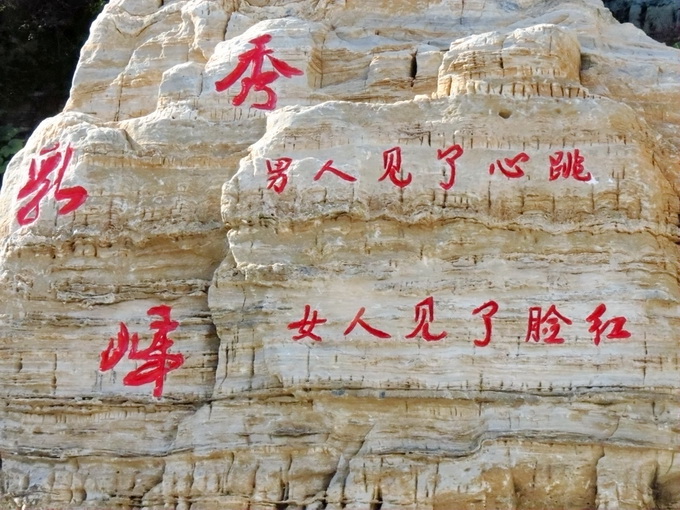 秀
乳
峰
男人见了心跳
女人见了脸红